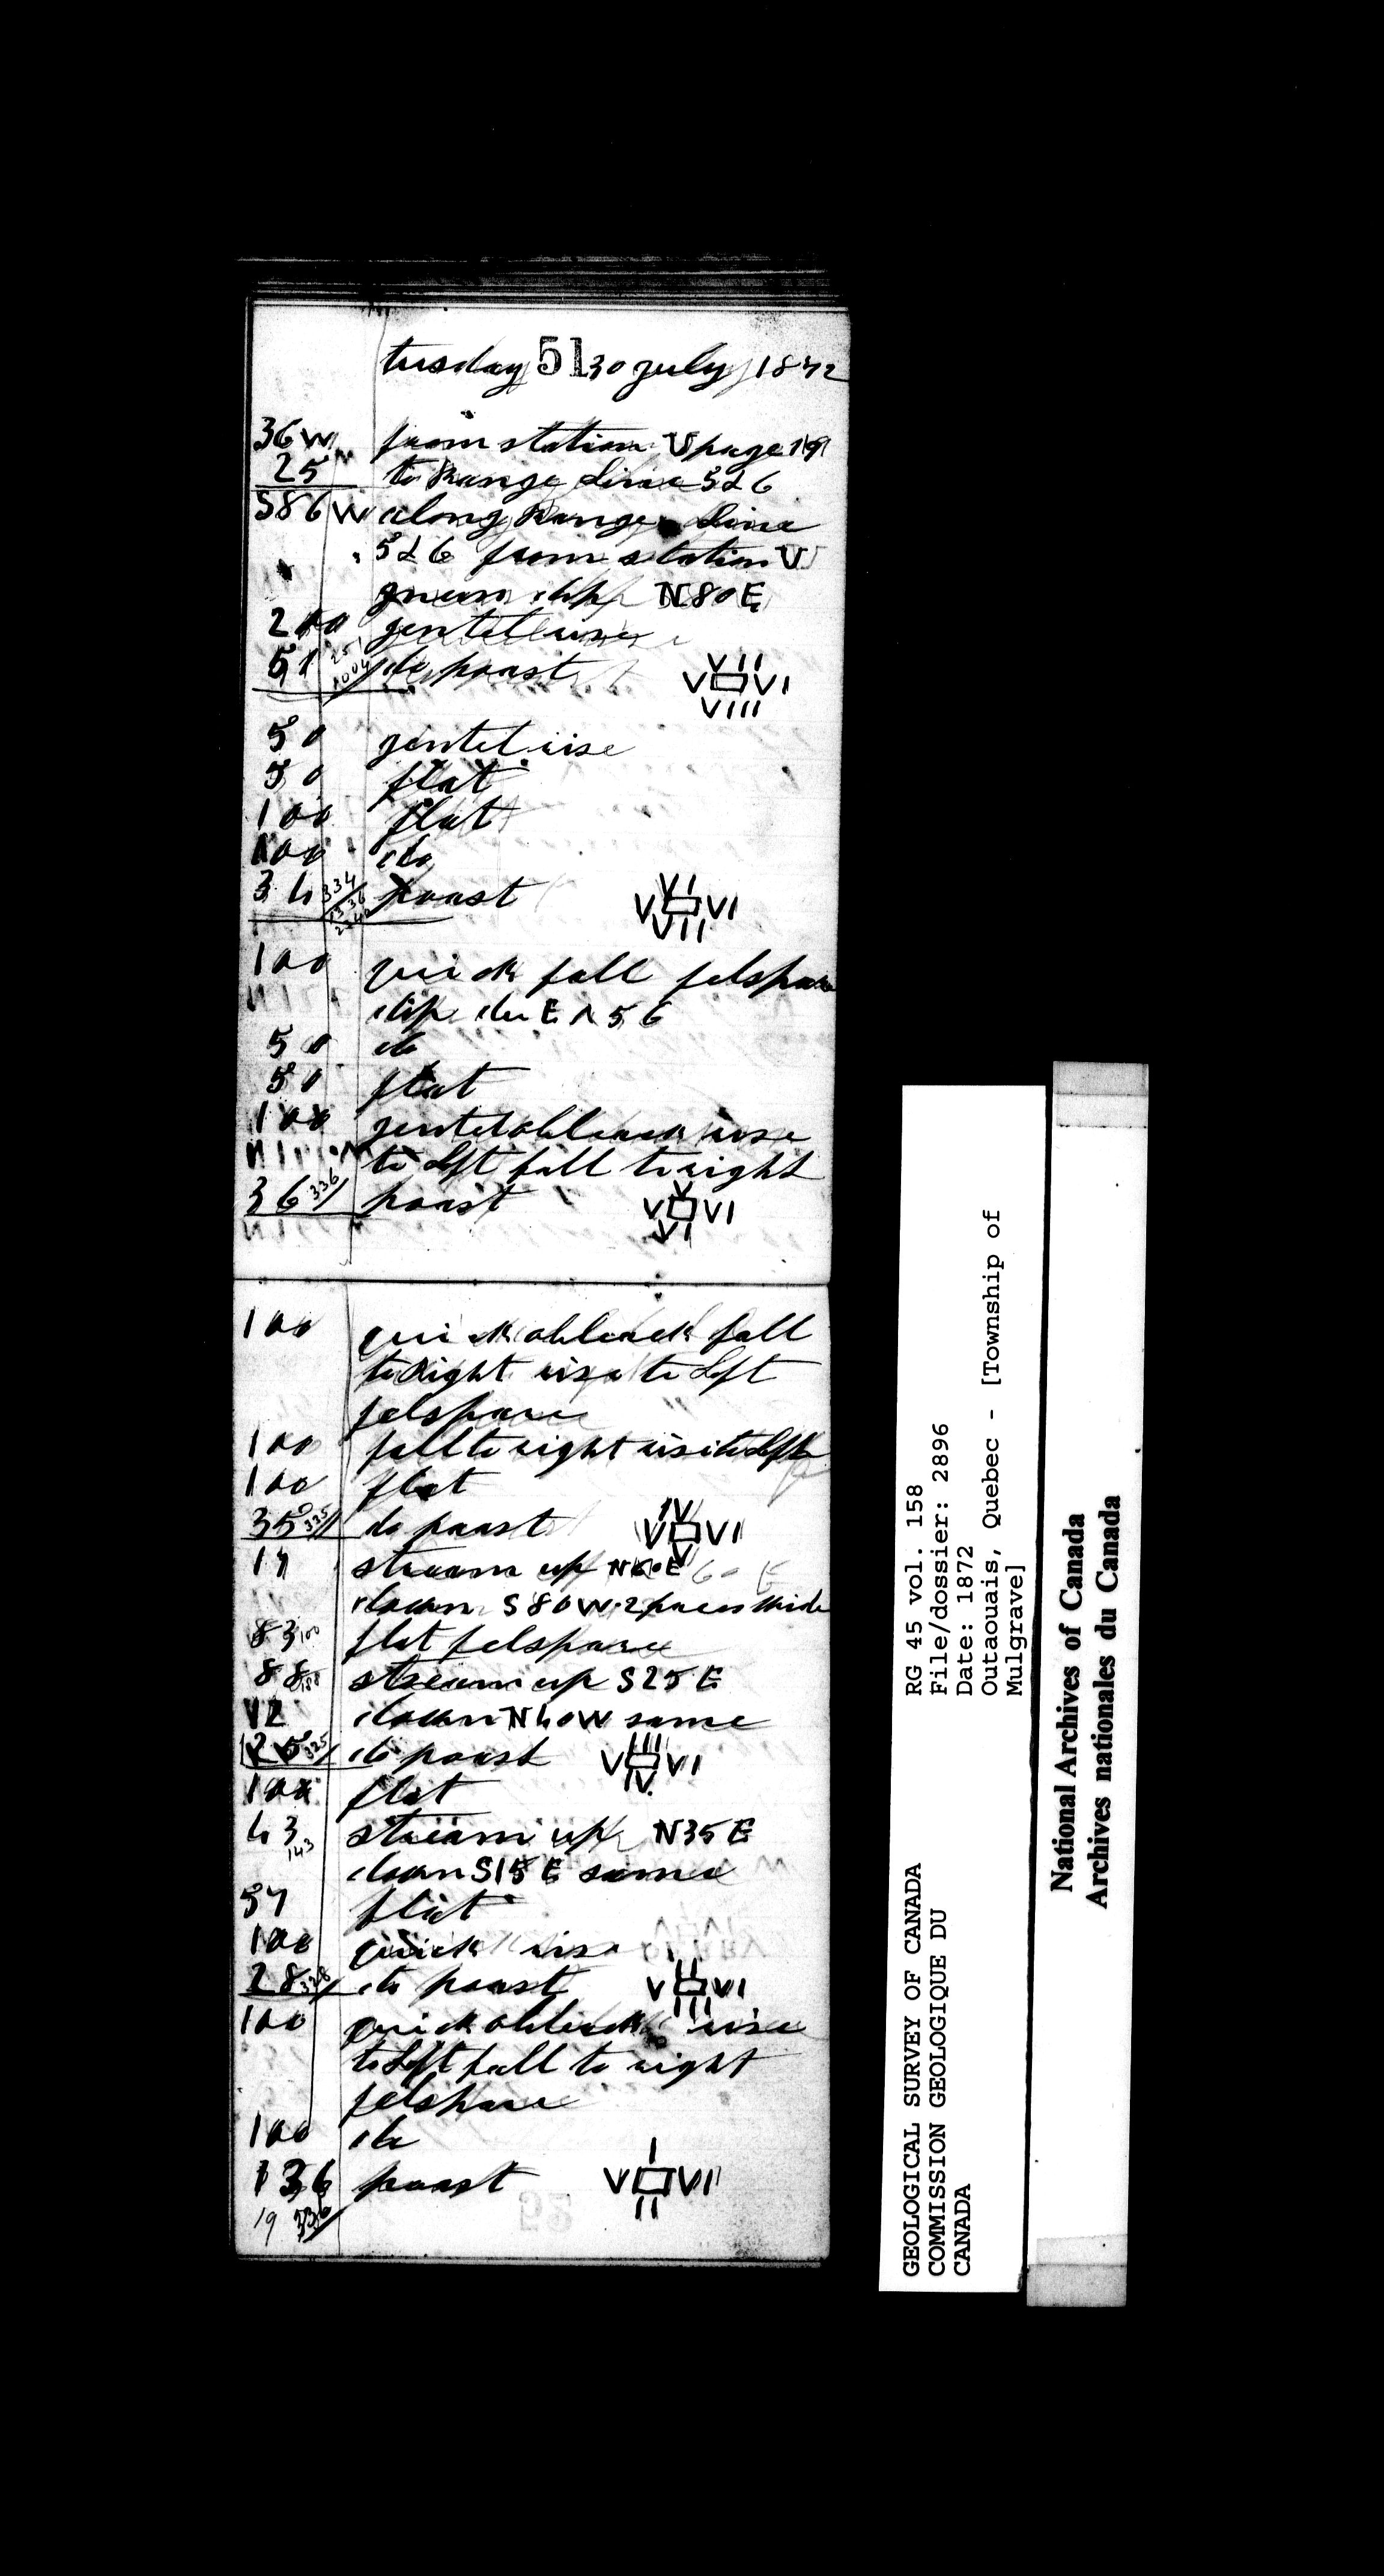 51
tusday 30 july 1872
36 W from station V page 19
25 to Range Line 5 & 6
S86W along Range Line
5 & 6 from station V
dip N80E
200 gentel rise
51 251/1004 do poast VII V VI VIII
50 gentel rise
50 flat
100 flat
100 do
34 334/1336 poast VI V VI VII
100 quick fall felspare
dip du E 56
50 do
50 flat
100 gentel obleack rise
to Left fall to right
36 336/ poast V V VI VI
100 quick obleack fall
to Right rise to Left
felspare
100 fall to right rise to Left
100 flat
35 335/ do poast IV V VI V
17 stream up N60E 60 E
down S80W 2 paces wide
83 100 flat felspare
88 188 stream up S25E
12 down N40W same
25 325/ do poast III V VI IV
100 flat
43 143 stream up N35E
down S15E same
57 flat
100 quick rise
28 328/ do poast II V VI III
100 quick obleack rise
to Left fall to right
felspare
100 do
136 poast I V VI II
19 336/
GEOLOGICAL SURVEY OF CANADA
COMMISSION GEOLOGIQUE DU
CANADA
RG 45 vol. 158
File/dossier: 2896
Date: 1872
Outaouais, Quebec - [Township of
Mulgrave]
National Archives of Canada
Archives nationales du Canada